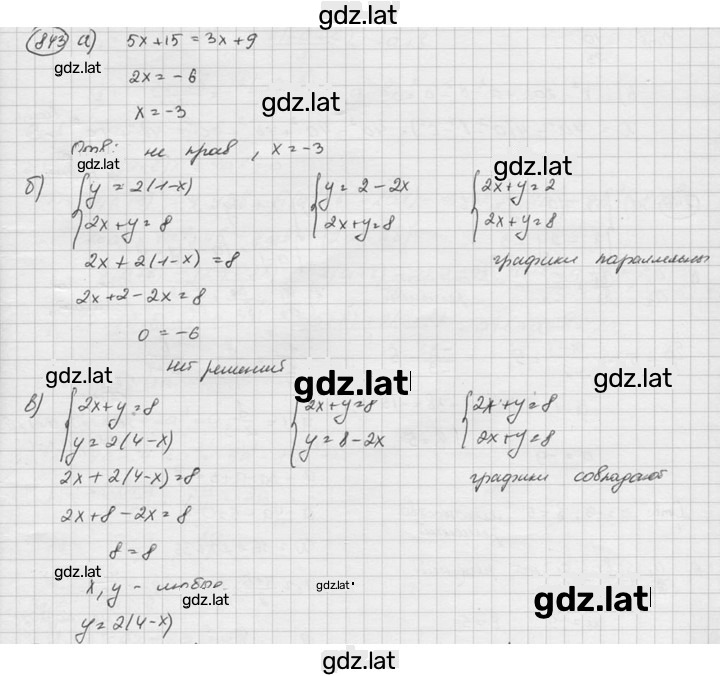 gdz.lat
843 а) 5x+15=3x+9
gdz.lat
2x=-6
gdz.lat
x=-3
Отв: не прав, x=-3
gdz.lat
gdz.lat
б) y=2(1-x) y=2-2x 2x+y=2
2x+y=8 2x+y=8 2x+y=8
2x+2(1-x)=8 графики параллельны
2x+2-2x=8
0=-6
нет решений
gdz.lat gdz.lat gdz.lat
в) 2x+y=8 2x+y=8 2x+y=8
y=2(4-x) y=8-2x 2x+y=8
2x+2(4-x)=8 графики совпадают
2x+8-2x=8
8=8
gdz.lat
x, y - любые
gdz.lat
gdz.lat
gdz.lat
y=2(4-x)
gdz.lat